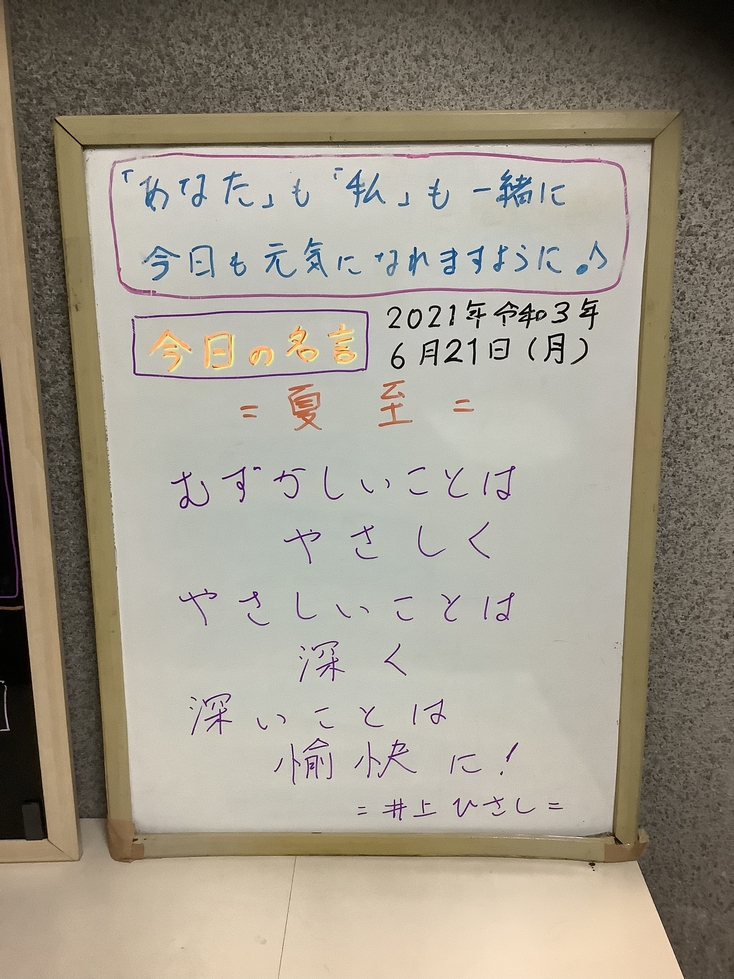 「あなた」も「私」も一緒に
今日も元気になれますように♪
今日の名言
2021年令和3年
6月21日(月)
=夏至=
むずかしいことは
やさしく
やさしいことは
深く
深いことは
愉快に!
=井上ひさし=